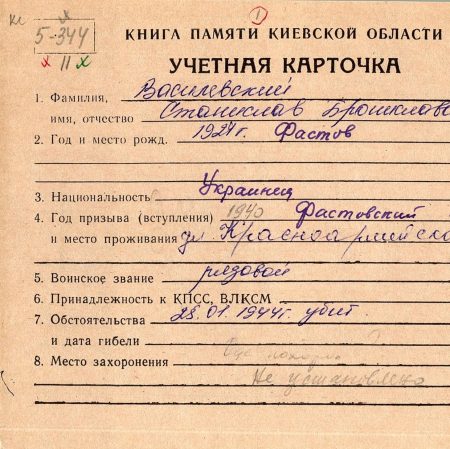 1
5-344
х 11 х
КНИГА ПАМЯТИ КИЕВСКОЙ ОБЛАСТИ
УЧЕТНАЯ КАРТОЧКА
1. Фамилия, Василевский
имя, отчество Станислав Брониславо
2. Год и место рожд. 1924г. Фастов
3. Национальность Украинец
4. Год призыва (вступления) 1940 Фастовский
и место проживания ул. Красноармейско
5. Воинское звание рядовой
6. Принадлежность к КПСС, ВЛКСМ
7. Обстоятельства 28.01.1944г. убит
и дата гибели
8. Место захоронения
Не установлено